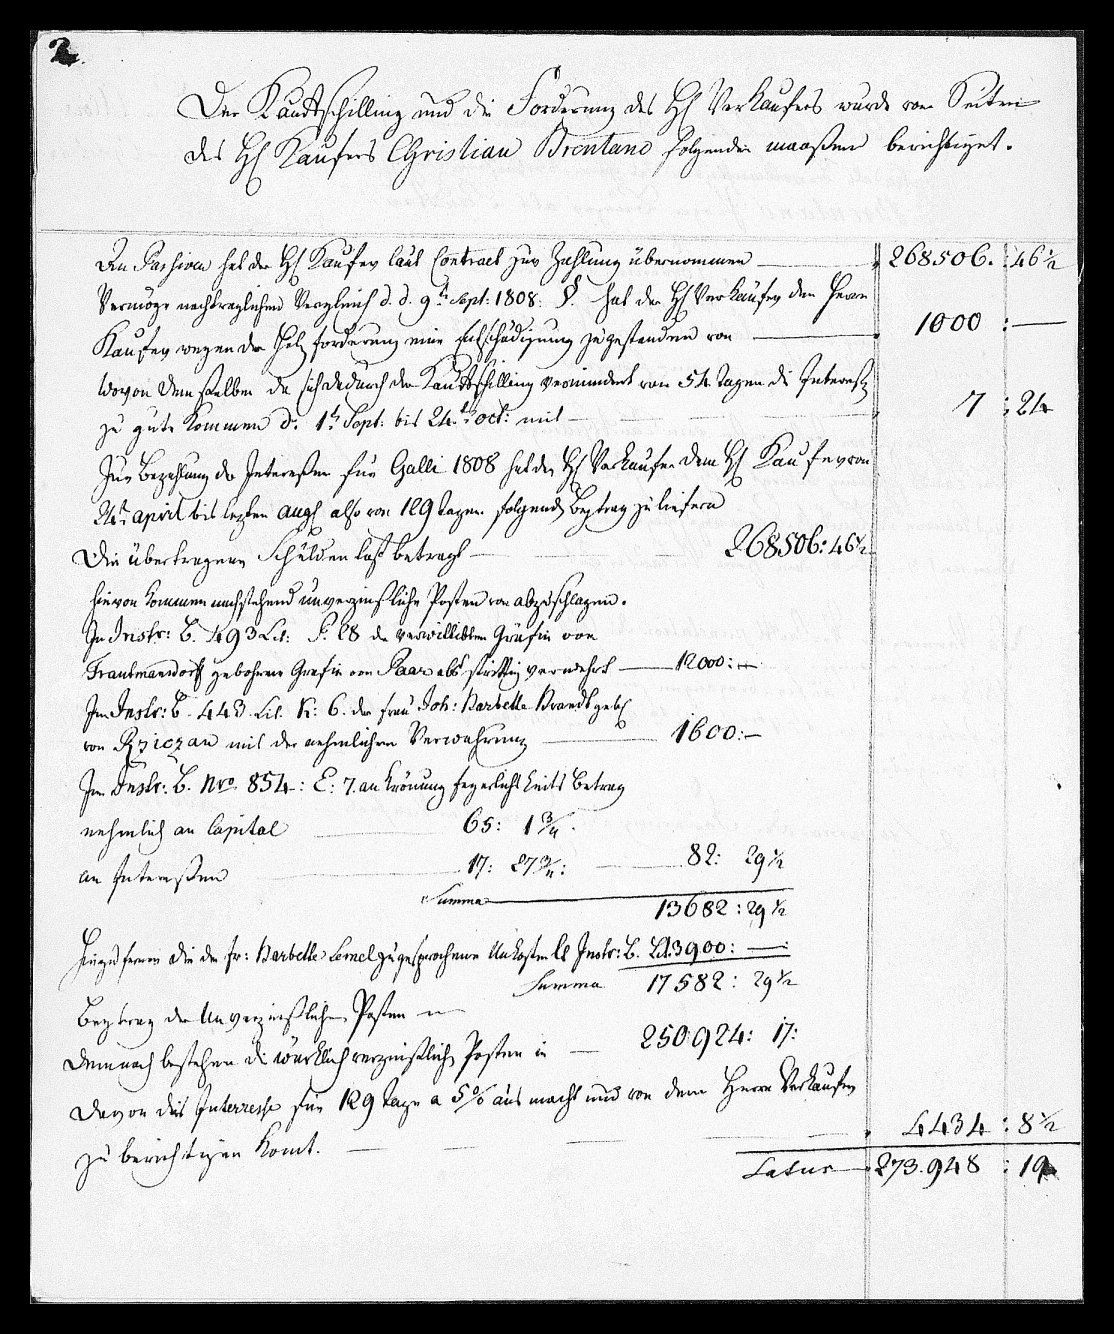 2.
Der Kaufschilling und die Forderung des H Verkaufers wurde von Seiten
des H Kaufers Christian Brentano folgender maaßen berichtiget.
An Passiven hat der H Kaufer laut Contract zur Zahlung übernommen 268506. : 46 1/2
Vermöge nachtraglichen Vergleich d. d. 9t Sept: 1808. §. hat der H Verkaufer dem Herrn
Kaufer wegen der Holz forderung eine Entschädigung zugestanden von 1000 : —
wovon demselben da sich dadurch der Kaufschilling vermindert von 54 Tagen die Intereßen
zu gute kommen d. 1t Sept: bis 24t Oct: mit 7 : 24
Zur Bezahlung der Intereßen für Galli 1808 hat der H Verkaufer dem H Kaufer von
24t april bis lezten augs also von 129 tagen folgenden Beytrag zu liefern
Die übertragenen Schulden last betragt 268506 : 46 1/2
hievon kommen nachstehend unverzinsliche Posten von abzuschlagen.
In Instr: B. 493 Lit: F. 28 der verwittibten Gräfin von
Trautmansdorf gebohrene Grafin von Paar als strittig verwehrt 12000 : —
Im Instr: B. 443. Lit. K: 6. der frau Joh: Barbette Brandt geb
von Rziczan mit der nehmlichen Verwahrung 1600 : —
Im Instr: B. Nro. 854 : E: 7. an Krönung feyerlichkeits Betrag
nehmlich an Capital 65 : 1 3/4
an Intereßen 17 : 27 3/4 : 82 : 29 1/2
Summa 13682 : 29 1/2
Hinzu ferner die der fr: Barbette zugesprochenen Unkosten Instr: B. Lit. 3900 : —
Summa 17582 : 29 1/2
Beytrag der Unverzinßlichen Posten
Demnach bestehen die würcklich verzinßlich Posten in 250924 : 17 :
Davon das Interesse für 129 Tage a 5% aus macht und von dem Herrn Verkaufer
zu berichtigen komt. 4434 : 8 1/2
Latus 273.948 : 19